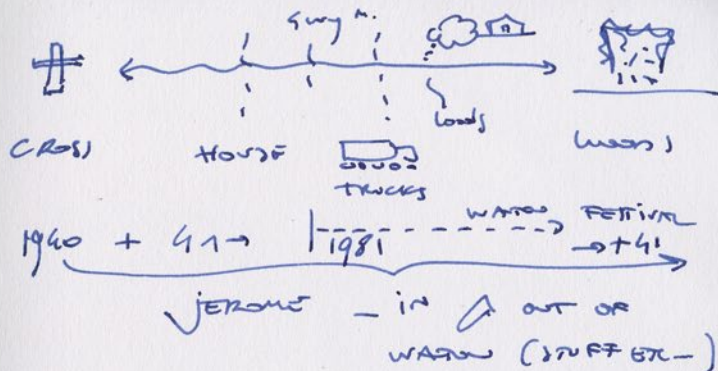 CROSS
HOUSE
TRUCKS
Loads
1940 + 41→ 1981 WATOU FESTIVAL
→ +41
JEROME – IN / OUT OF
WATOU (STUFF ETC –)